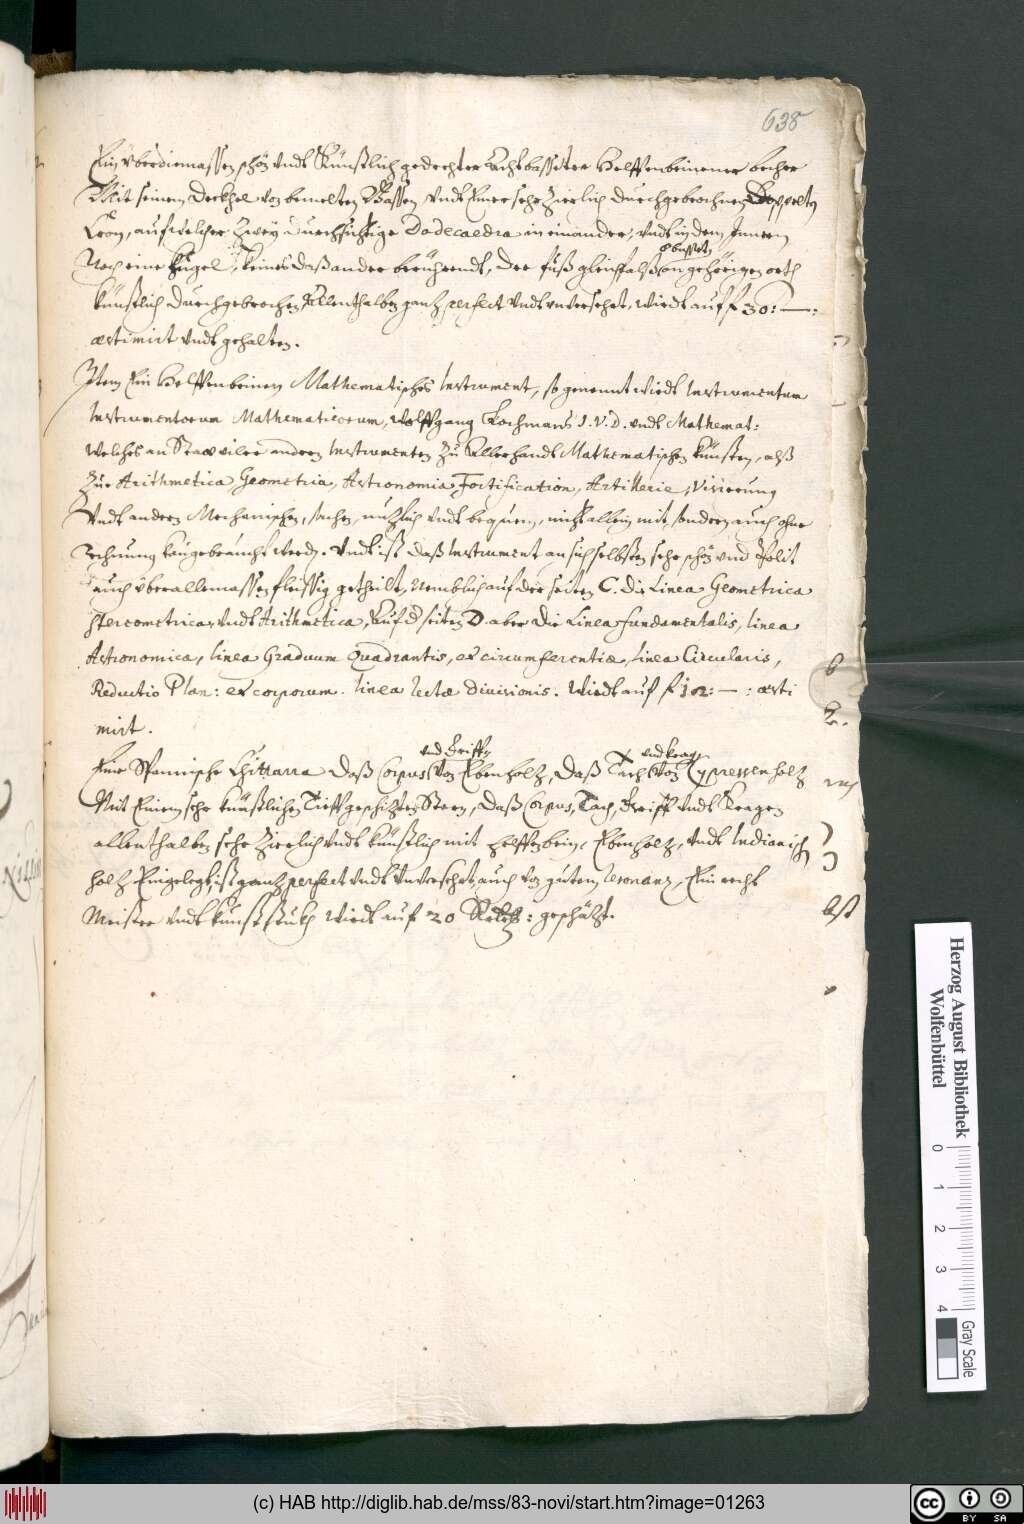 638
Ein überdiemassen schön vndt Künstlich gedrechter Achtbasseter Helffenbeinener becher
Mit seinem Deckhel von bemelten Bassen vndt Einer sehr zierlich durchgebrochnen Doppelten
Cron, auf welcher Zwey durchsichtige Dodecaedra in einander, vndt in dem Innern
Noch eine Kugel, keines daß ander berührendt, der fuß gleichfalß an gehörigen orth
Künstlich durchgebrochen, Allenthalben ganz perfect vndt vnversehrt, wirdt auff f 30: — :
æstimirt vndt gehalten.
Item Ein Helffenbeinen Mathematisches Instrument, so genennt wirdt Instrumentum
Instrumentorum Mathematicorum, Wolffgang Lochmans I. V. D. vndt Mathemat:
welches an Statt viler andern Instrumenten Zu Allerhandt Mathematischen Künsten, alß
Zur Arithmetica, Geometria, Astronomia, Fortification, Artillerie, Visierung
Vndt andern Mechanischen, sachen, nuzlich vndt bequem, nicht allein mit, sondern auch ohne
rechnung kan gebraucht werden. Vndt ist daß Instrument an sich selbsten sehr schön vnd Polit
auch überallemassen fleissig getheilt, Nemblich auf der seiten C. die Linea Geometrica
Stereometrica, vndt Arithmetica, Auf d seiten D. aber die Linea fundamentalis, linea
Astronomica, linea Graduum Quadrantis, et circumferentiæ, linea Circularis,
Reductio Plan: et corporum. linea rectæ divisionis. Wirdt auf f 102: — : æsti
mirt.
vnd Griff
vnd kragen
Eine Spannische Chittarra daß Corpus von Ebenholz, daß Tach von Cypressenholz
Mit Einem sehr künstlichen Tieff geschitten Stern, daß Corpus, Tach, Greiff vndt Kragen
allenthalben sehr Zierlich vndt künstlich mit helffenbein, Ebenholz, vndt Indianisch
holz Eingelegt, ist ganz perfect vndt vnversehrt, auch von gutem resonanz, Ein recht
Meister vndt kunst stuckh wirdt auf 20 Rthlr: geschäzt.
Herzog August Bibliothek
Wolfenbüttel
0 1 2 3 4
Gray Scale
(c) HAB http://diglib.hab.de/mss/83-novi/start.htm?image=01263
cc BY SA